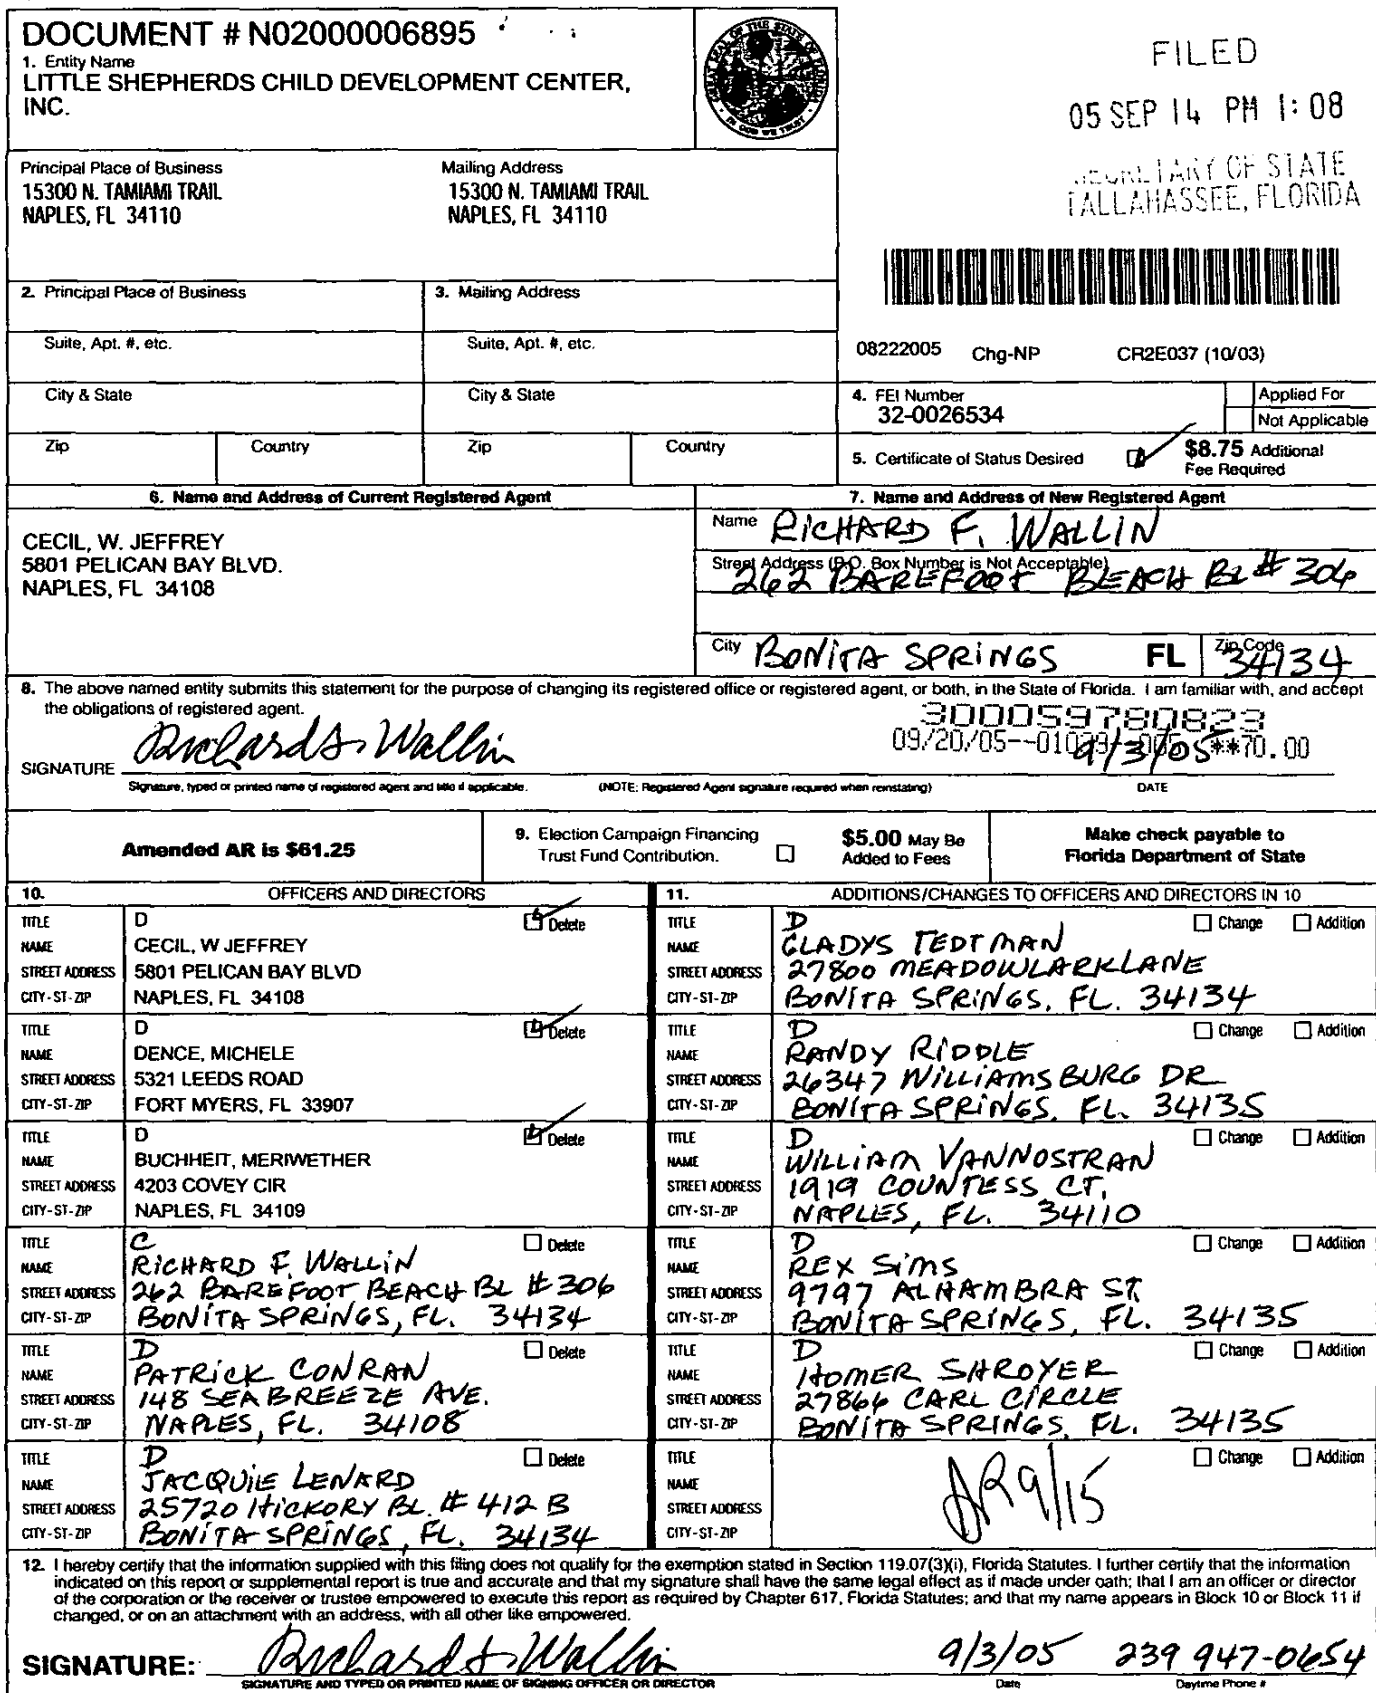 DOCUMENT # N02000006895
1. Entity Name
LITTLE SHEPHERDS CHILD DEVELOPMENT CENTER,
INC.
GREAT SEAL OF THE STATE OF FLORIDA
IN GOD WE TRUST
FILED
05 SEP 14 PM 1:08
SECRETARY OF STATE
TALLAHASSEE, FLORIDA
Principal Place of Business
15300 N. TAMIAMI TRAIL
NAPLES, FL 34110
Mailing Address
15300 N. TAMIAMI TRAIL
NAPLES, FL 34110
2. Principal Place of Business
3. Mailing Address
Suite, Apt. #, etc.
Suite, Apt. #, etc.
08222005 Chg-NP CR2E037 (10/03)
City & State
City & State
4. FEI Number
32-0026534
Applied For
Not Applicable
Zip
Country
Zip
Country
5. Certificate of Status Desired
$8.75 Additional
Fee Required
6. Name and Address of Current Registered Agent
CECIL, W. JEFFREY
5801 PELICAN BAY BLVD.
NAPLES, FL 34108
7. Name and Address of New Registered Agent
Name RICHARD F. WALLIN
Street Address (P.O. Box Number is Not Acceptable)
262 BAREFOOT BEACH BL # 306
City BONITA SPRINGS FL Zip Code 34134
8. The above named entity submits this statement for the purpose of changing its registered office or registered agent, or both, in the State of Florida. I am familiar with, and accept
the obligations of registered agent.
300059780823
09/20/05--01039--005 **70.00
SIGNATURE Richard F. Wallin 9/3/05
Signature, typed or printed name of registered agent and title if applicable. (NOTE: Registered Agent signature required when reinstating) DATE
Amended AR is $61.25
9. Election Campaign Financing
Trust Fund Contribution.
$5.00 May Be
Added to Fees
Make check payable to
Florida Department of State
10. OFFICERS AND DIRECTORS
TITLE D Delete
NAME CECIL, W JEFFREY
STREET ADDRESS 5801 PELICAN BAY BLVD
CITY-ST-ZIP NAPLES, FL 34108
TITLE D Delete
NAME DENCE, MICHELE
STREET ADDRESS 5321 LEEDS ROAD
CITY-ST-ZIP FORT MYERS, FL 33907
TITLE D Delete
NAME BUCHHEIT, MERIWETHER
STREET ADDRESS 4203 COVEY CIR
CITY-ST-ZIP NAPLES, FL 34109
TITLE C Delete
NAME RICHARD F. WALLIN
STREET ADDRESS 262 BAREFOOT BEACH BL # 306
CITY-ST-ZIP BONITA SPRINGS, FL. 34134
TITLE D Delete
NAME PATRICK CONRAN
STREET ADDRESS 148 SEABREEZE AVE.
CITY-ST-ZIP NAPLES, FL. 34108
TITLE D Delete
NAME JACQUIE LENARD
STREET ADDRESS 25720 HICKORY BL. # 412 B
CITY-ST-ZIP BONITA SPRINGS, FL. 34134
11. ADDITIONS/CHANGES TO OFFICERS AND DIRECTORS IN 10
TITLE D Change Addition
NAME GLADYS TEDTMAN
STREET ADDRESS 27800 MEADOWLARK LANE
CITY-ST-ZIP BONITA SPRINGS, FL. 34134
TITLE D Change Addition
NAME RANDY RIDDLE
STREET ADDRESS 26347 WILLIAMSBURG DR
CITY-ST-ZIP BONITA SPRINGS, FL. 34135
TITLE D Change Addition
NAME WILLIAM VANNOSTRAN
STREET ADDRESS 1919 COUNTESS CT.
CITY-ST-ZIP NAPLES, FL. 34110
TITLE D Change Addition
NAME REX SIMS
STREET ADDRESS 9797 ALHAMBRA ST.
CITY-ST-ZIP BONITA SPRINGS, FL. 34135
TITLE D Change Addition
NAME HOMER SHROYER
STREET ADDRESS 27866 CARL CIRCLE
CITY-ST-ZIP BONITA SPRINGS, FL. 34135
TITLE Change Addition
NAME
STREET ADDRESS 9/15
CITY-ST-ZIP
12. I hereby certify that the information supplied with this filing does not qualify for the exemption stated in Section 119.07(3)(i), Florida Statutes. I further certify that the information
indicated on this report or supplemental report is true and accurate and that my signature shall have the same legal effect as if made under oath; that I am an officer or director
of the corporation or the receiver or trustee empowered to execute this report as required by Chapter 617, Florida Statutes; and that my name appears in Block 10 or Block 11 if
changed, or on an attachment with an address, with all other like empowered.
SIGNATURE: Richard F. Wallin 9/3/05 239 947-0654
SIGNATURE AND TYPED OR PRINTED NAME OF SIGNING OFFICER OR DIRECTOR Date Daytime Phone #